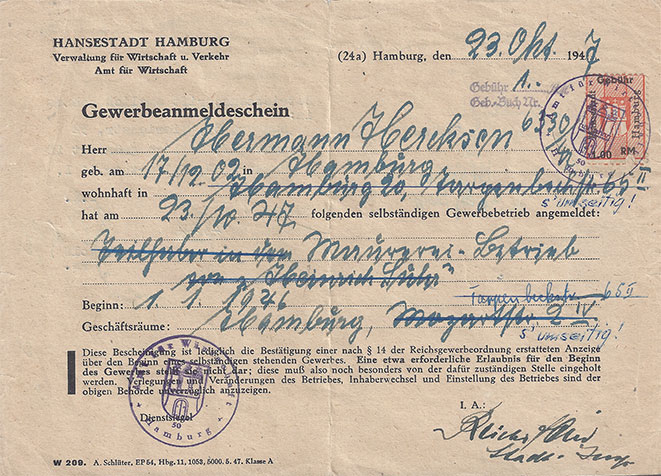 HANSESTADT HAMBURG
Verwaltung für Wirtschaft u. Verkehr
Amt für Wirtschaft
(24a) Hamburg, den 23. Okt. 1947
Gebühr 1.-
Geb.-Buch Nr. 6330
Gebühr
1.00 RM.
Gewerbeanmeldeschein
Herr Hermann Hercksen
geb. am 17/12.02 in Hamburg
wohnhaft in Hamburg 20, Tarpenbeckstr. 65 II
s'umseitig!
hat am 23./10.47 folgenden selbständigen Gewerbebetrieb angemeldet:
Teilhaber in dem Maurerei-Betrieb
von „Heinrich Lühr"
Beginn: 1.1.1946
Tarpenbeckstr. 65 II
Geschäftsräume: Hamburg, Mozartstr. 2 IV
s'umseitig!
Diese Bescheinigung ist lediglich die Bestätigung einer nach § 14 der Reichsgewerbeordnung erstatteten Anzeige
über den Beginn eines selbständigen stehenden Gewerbes. Eine etwa erforderliche Erlaubnis für den Beginn
des Gewerbes stellt sie nicht dar; diese muß also noch besonders von der dafür zuständigen Stelle eingeholt
werden. Verlegungen und Veränderungen des Betriebes, Inhaberwechsel und Einstellung des Betriebes sind der
obigen Behörde unverzüglich anzuzeigen.
Dienstsiegel
Amt für Wirtschaft
50
Hamburg
I. A.:
W 209. A. Schlüter, EP 54, Hbg. 11, 1053, 5000. 5. 47. Klasse A